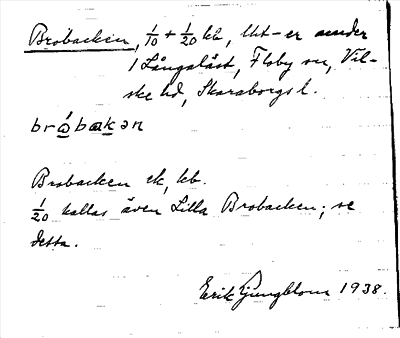 Brobacken, 1/10 + 1/20 kb, Ut-er under
1 Långalåst, Floby sn, Vil-
ske hd, Skaraborgs l.
brǻbakən
Brobacken ek, kb.
1/20 kallas även Lilla Brobacken; se
detta.
Erik Ljungblom 1938.